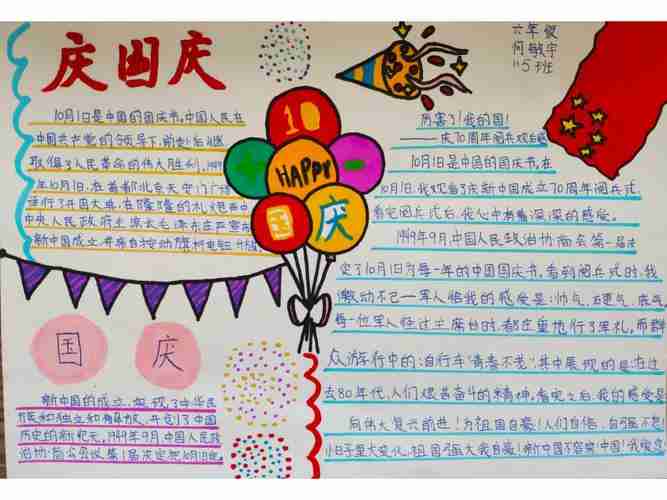 庆国庆
10月1日是中国的国庆节,中国人民在
中国共产党的领导下,前赴后继
取得了人民革命的伟大胜利,1949
年10月1日,在首都北京天安门广场
举行了开国大典,在隆隆的礼炮声中
中央人民政府主席毛泽东庄严宣布
新中国成立,并亲自按动
国
庆
新中国的成立,实现了中华民
族和独立和解放,开创了中国
历史的新纪元,1949年9月,中国人民政
治协商会议第1届决定把10月1日定
10
HAPPY
国
庆
六年级
何敏宇
115班
厉害了!我的国!
——庆70周年阅兵观后感
10月1日是中国的国庆节,在
10月1日,我观看了庆新中国成立70周年阅兵式
看完阅兵式后,我心中有着深深的感受。
1949年9月,中国人民政治协商会第一届决
定了10月1日为每一年的中国国庆节,看到阅兵式时,我
激动不已——军人给我的感受是:帅气、
每一位军人经过主席台时,都庄重地行了军礼,而群
众游行中的:自行车“青春不老”,其中展现的是
去80年代,人们艰苦奋斗的精神,看完之后,我的感受是
向伟大复兴前进!为祖国自豪!人们自信,自强不息
小日子里大变化,祖国强大我自豪!新中国不容欺!中国!我爱您